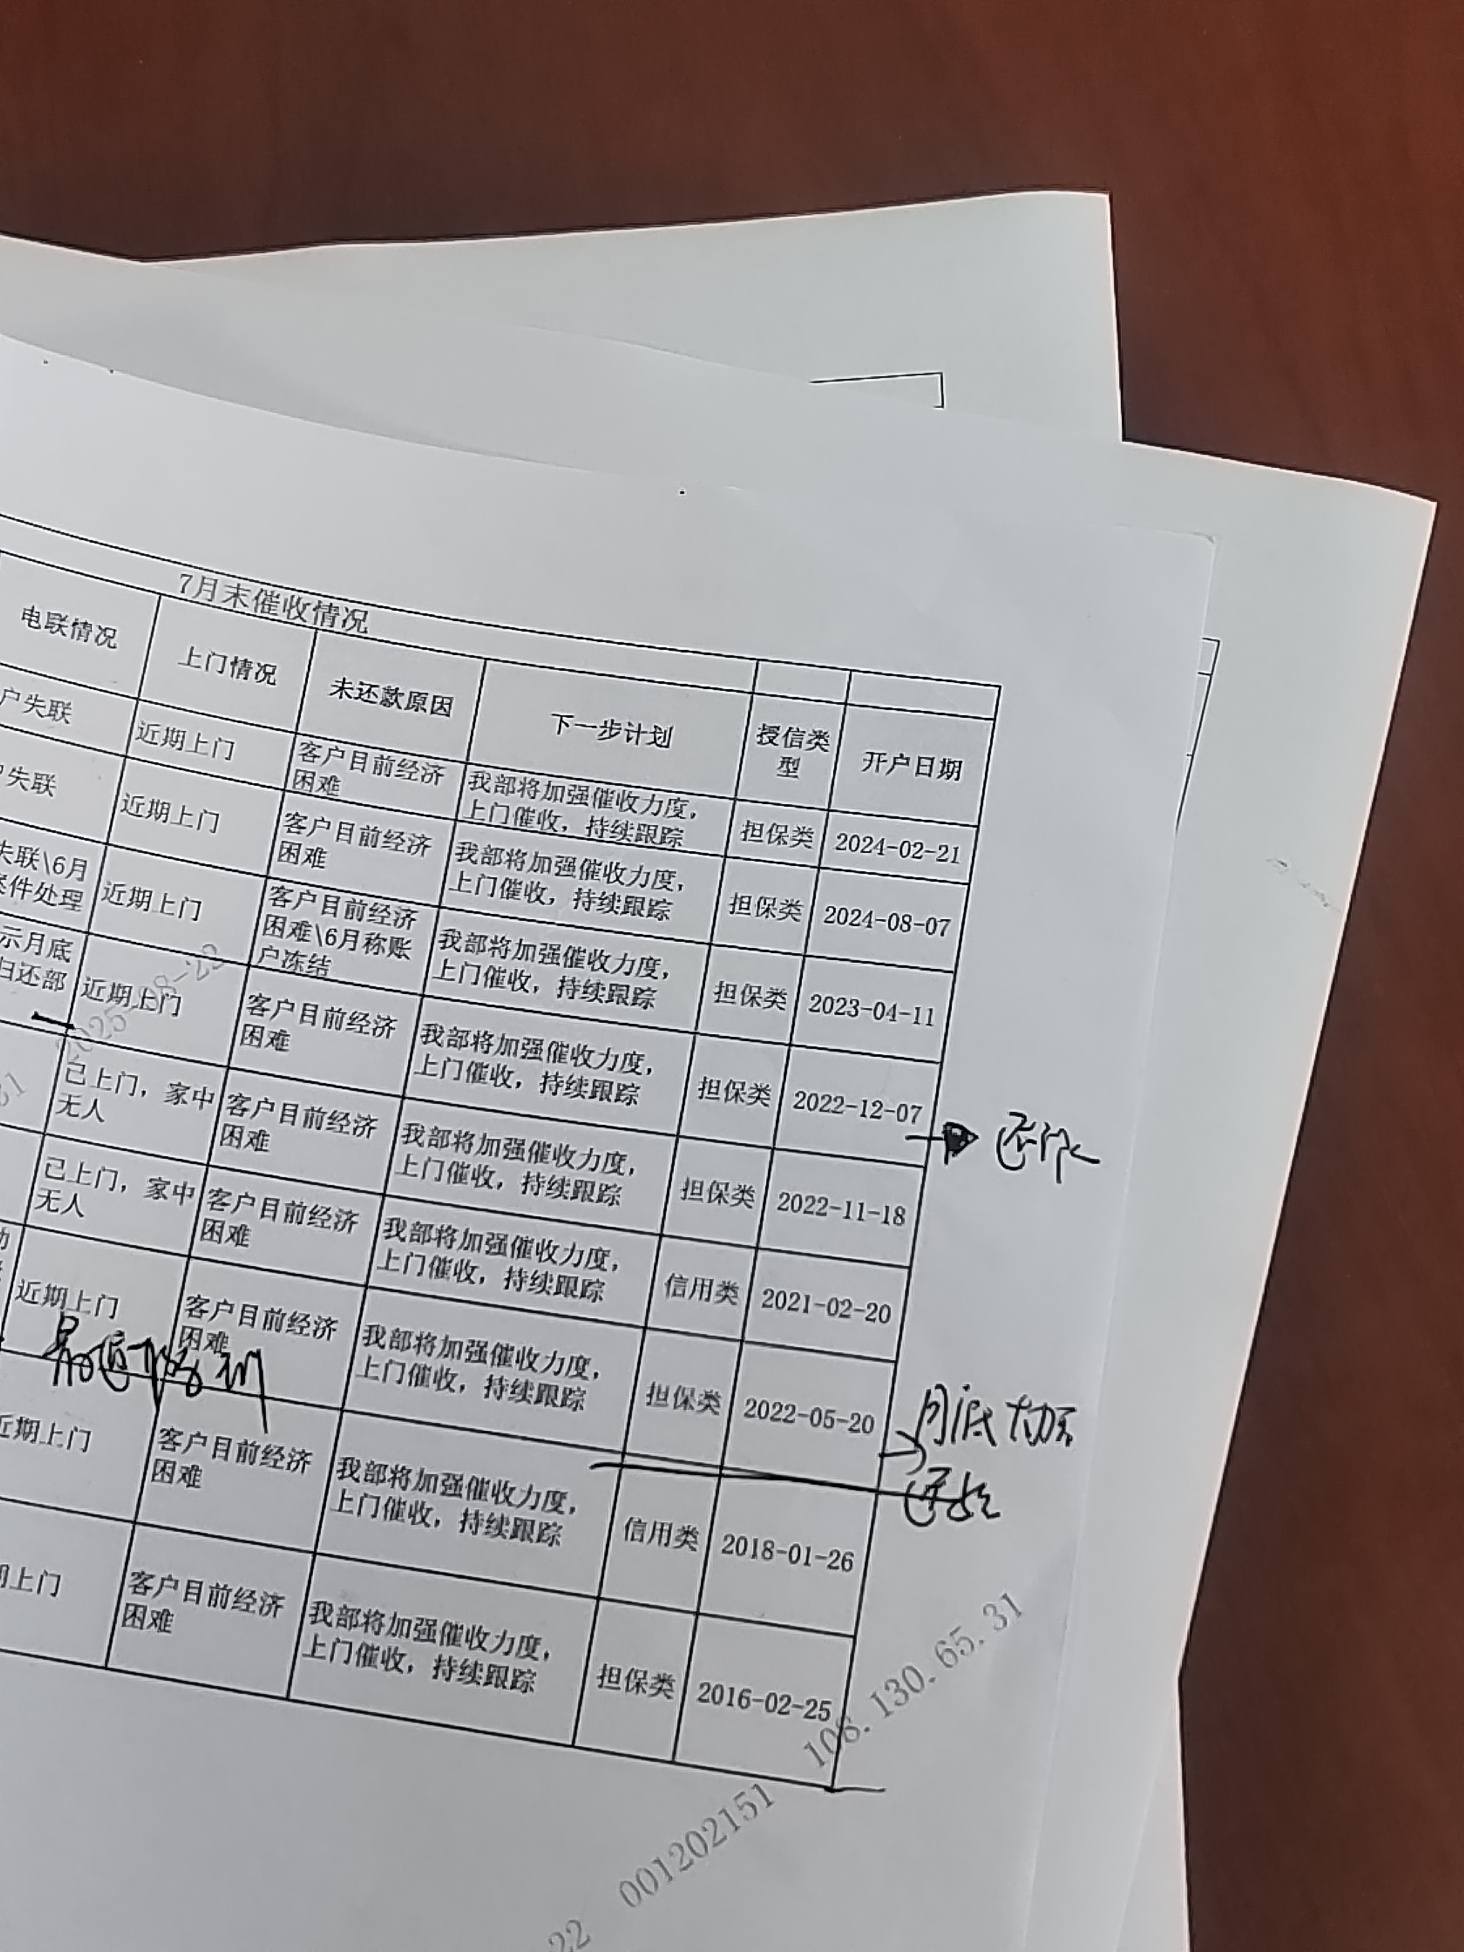 7月末催收情况
电联情况 上门情况 未还款原因 下一步计划 授信类型 开户日期
户失联 近期上门 客户目前经济困难 我部将加强催收力度，上门催收，持续跟踪 担保类 2024-02-21
失联 近期上门 客户目前经济困难 我部将加强催收力度，上门催收，持续跟踪 担保类 2024-08-07
失联\6月案件处理 近期上门 客户目前经济困难\6月称账户冻结 我部将加强催收力度，上门催收，持续跟踪 担保类 2023-04-11
示月底归还部 近期上门 客户目前经济困难 我部将加强催收力度，上门催收，持续跟踪 担保类 2022-12-07
已上门，家中无人 客户目前经济困难 我部将加强催收力度，上门催收，持续跟踪 担保类 2022-11-18
已上门，家中无人 客户目前经济困难 我部将加强催收力度，上门催收，持续跟踪 信用类 2021-02-20
近期上门 客户目前经济困难 我部将加强催收力度，上门催收，持续跟踪 担保类 2022-05-20
月底
近期上门 客户目前经济困难 我部将加强催收力度，上门催收，持续跟踪 信用类 2018-01-26
期上门 客户目前经济困难 我部将加强催收力度，上门催收，持续跟踪 担保类 2016-02-25
2025-08-22
31
22 001202151 108.130.65.31